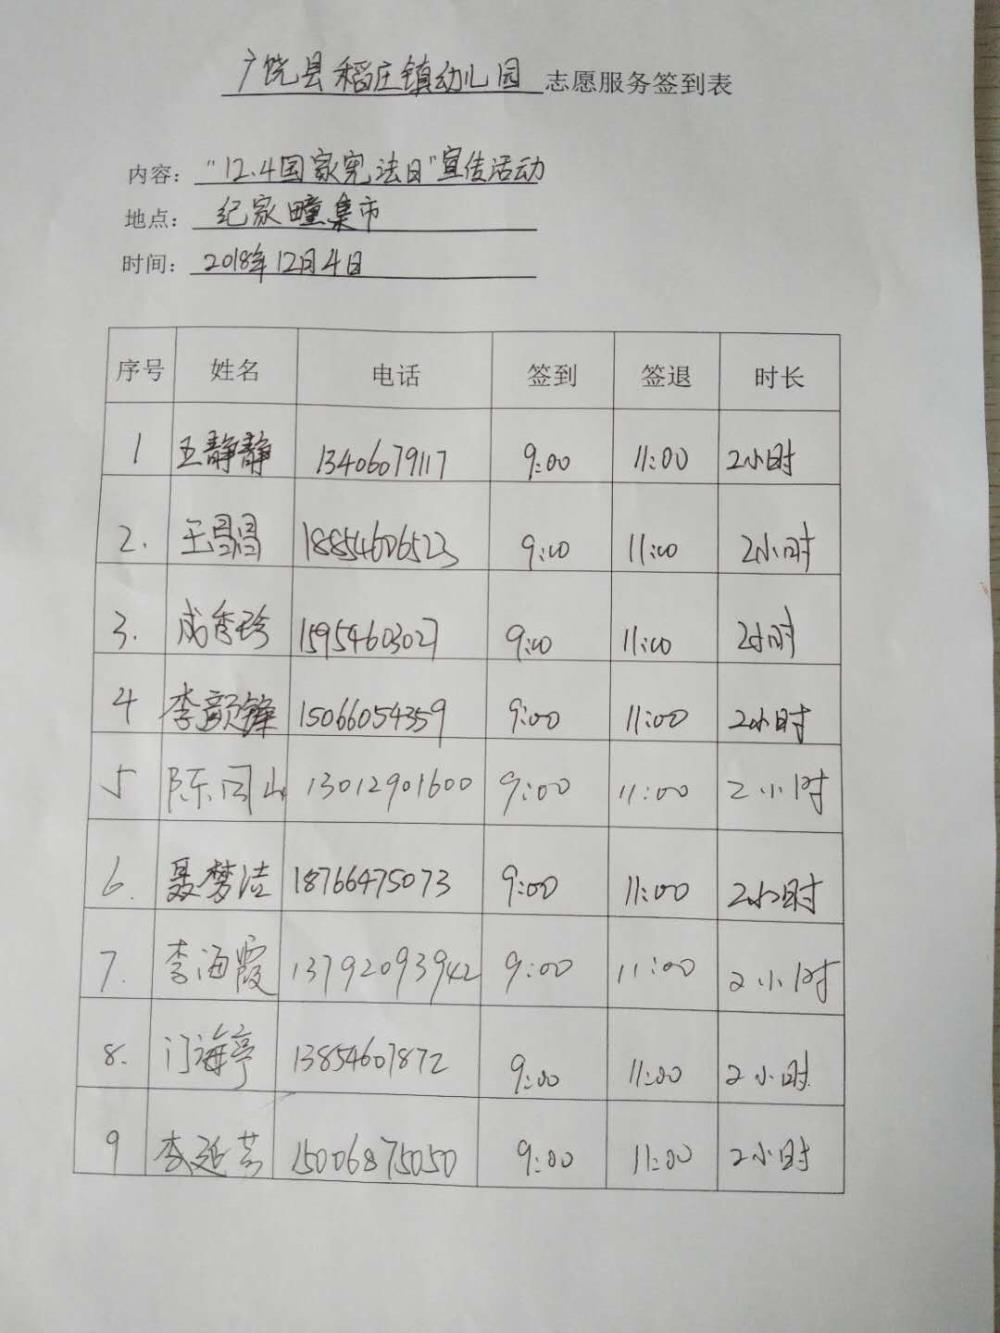 广饶县稻庄镇幼儿园 志愿服务签到表
内容："12.4国家宪法日"宣传活动
地点：纪家疃集市
时间：2018年12月4日
序号 姓名 电话 签到 签退 时长
1 王静静 13406079117 9:00 11:00 2小时
2. 王昌昌 18854606523 9:00 11:00 2小时
3. 成秀珍 15954603027 9:00 11:00 2小时
4 李颜锋 15066054359 9:00 11:00 2小时
5 陈同山 13012901600 9:00 11:00 2小时
6. 聂梦洁 18766475073 9:00 11:00 2小时
7. 李海霞 13792093942 9:00 11:00 2小时
8. 门海亭 13854607872 9:00 11:00 2小时
9 李延芳 15006875050 9:00 11:00 2小时